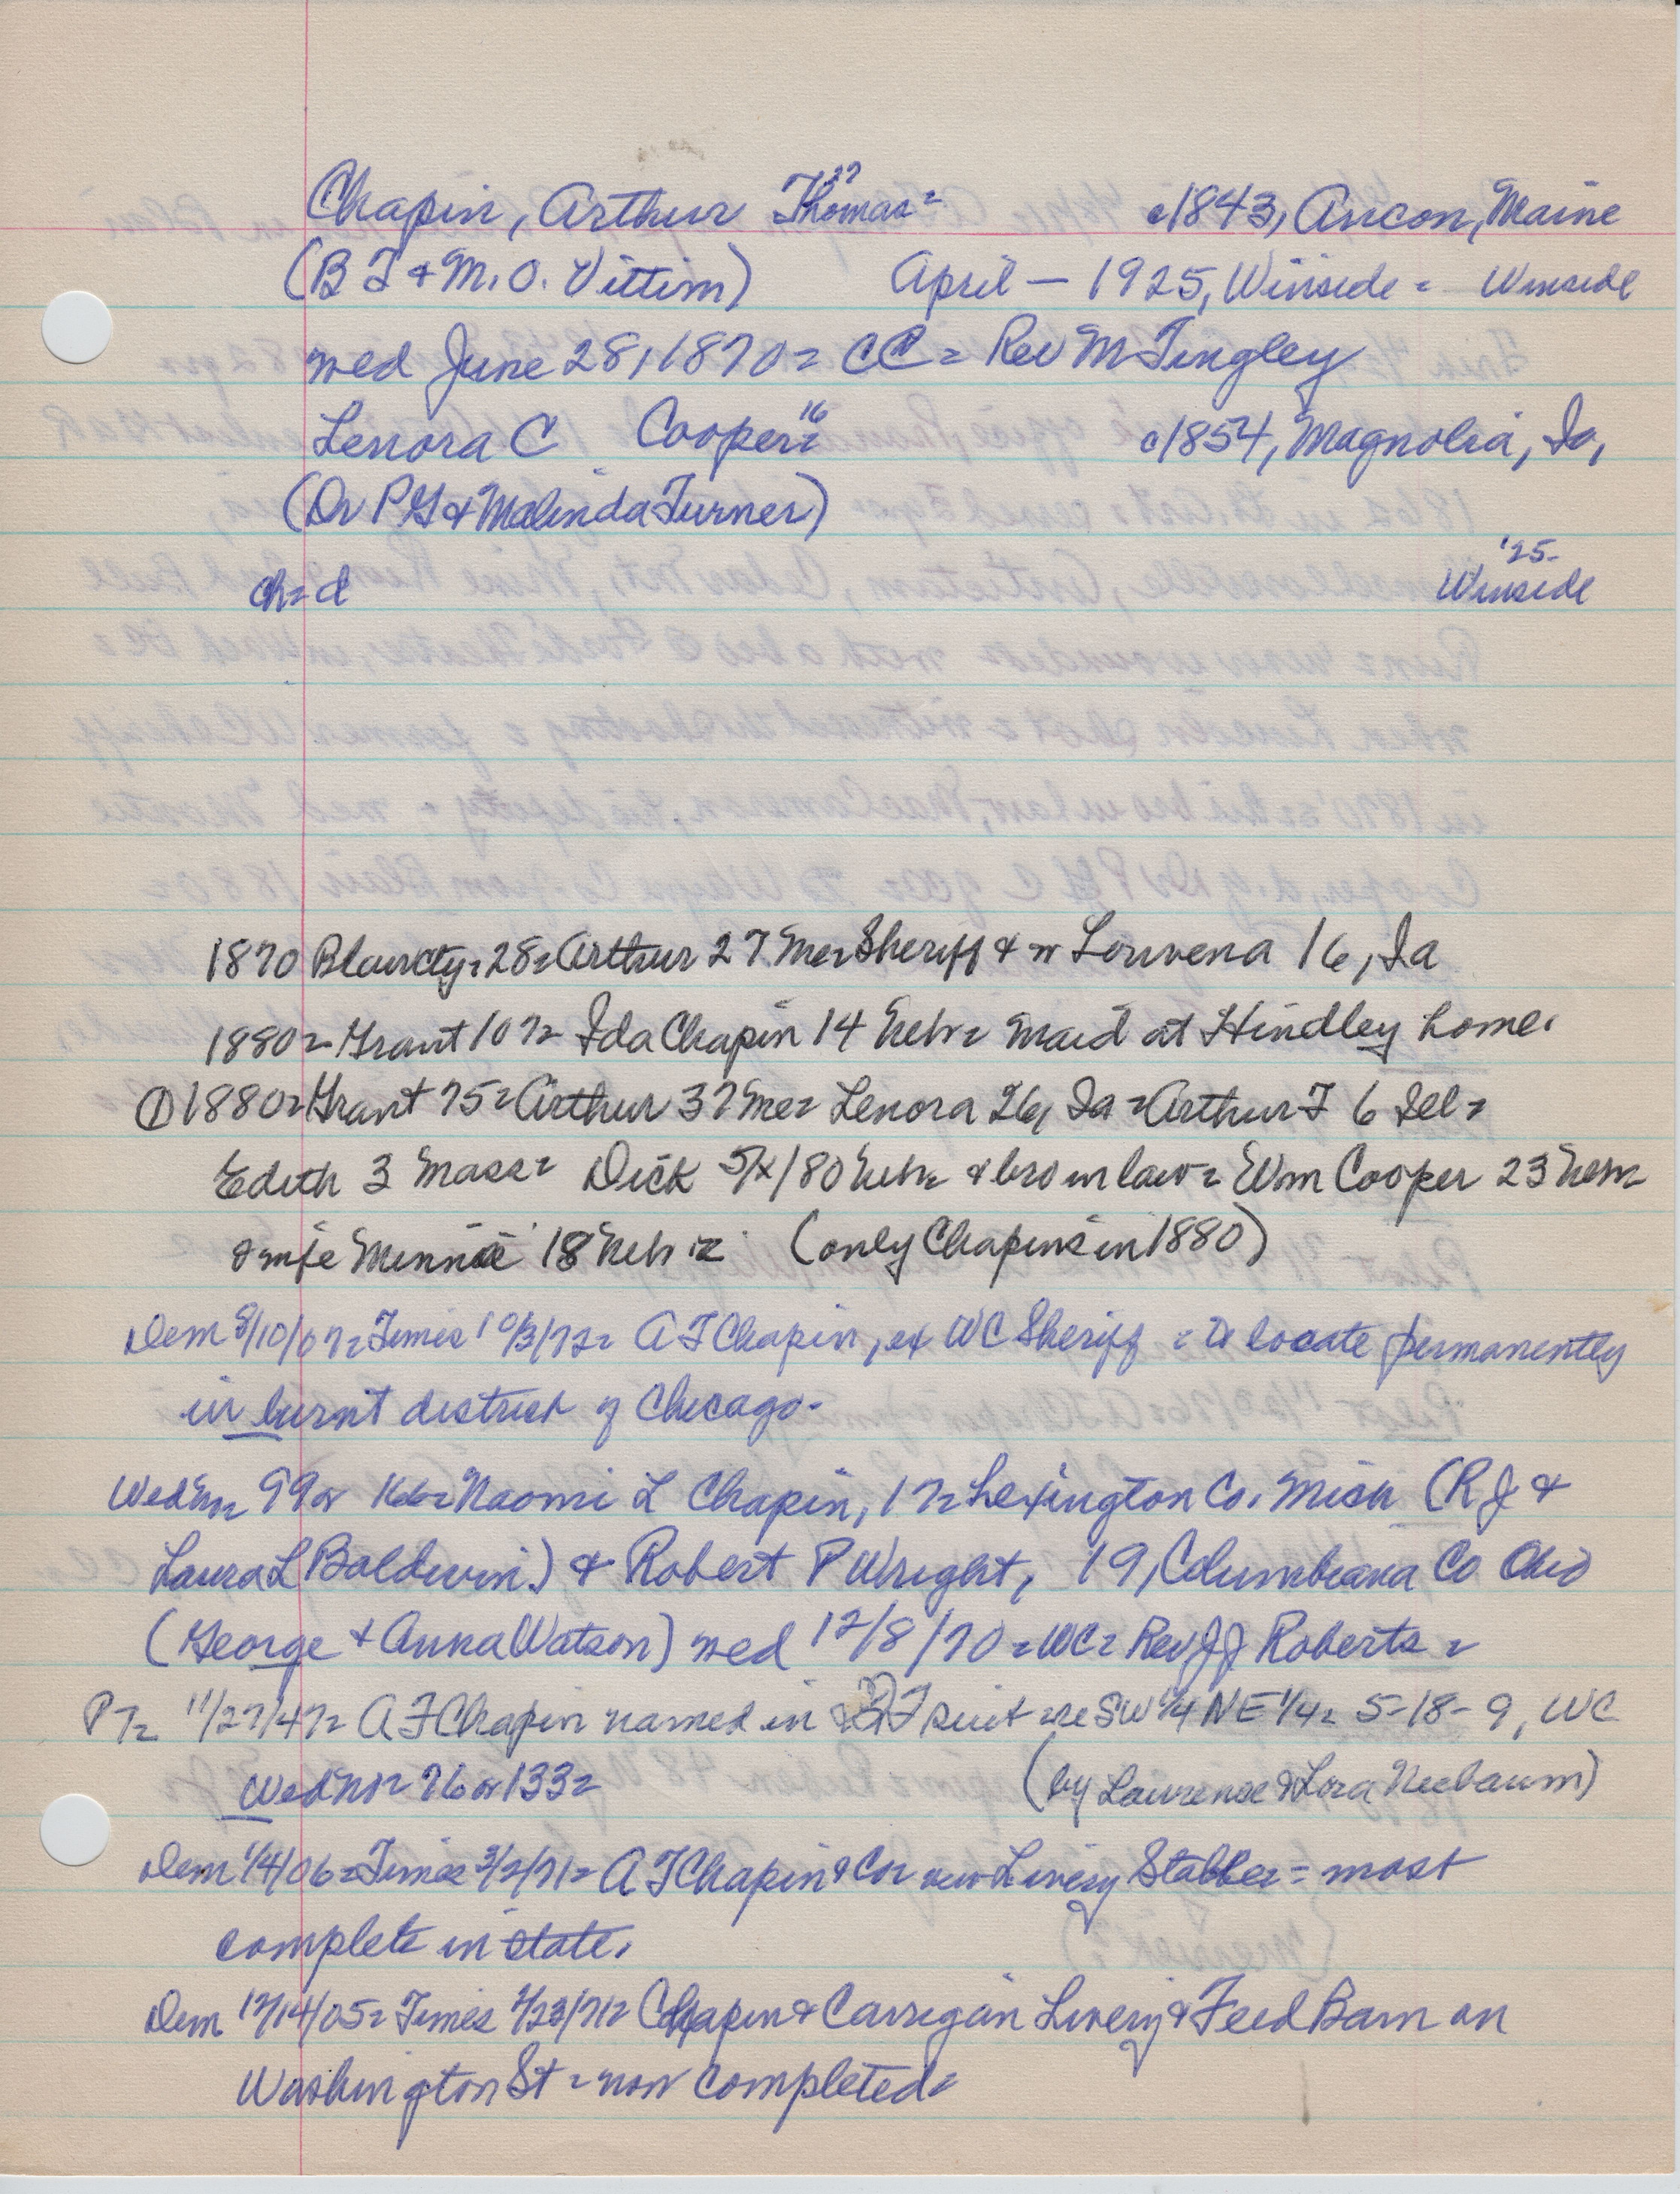 Chapin, Arthur Thomas 27 = c1843, Anson, Maine
(B T & M. O. Vittim) April — 1925, Winside = Winside
med June 28, 1870 = CC = Rev M Tingley
Lenora C Cooper 16 = c1854, Magnolia, Ia,
(Dr P G & Malinda Turner)
'25-
ch = d Winside
1870 Blaircty = 28 = Arthur 27 Me = Sheriff & w Louvena 16, Ia
1880 = Grant 107 = Ida Chapin 14 Nebr = maid at Hindley home.
① 1880 = Grant 75 = Arthur 37 Me = Lenora 26, Ia = Arthur T 6 Ill =
Edith 3 Mass = Dick 5/x/80 Nebr = & bro in law = Wm Cooper 23 Nebr
& wife Minnie 18 Nebr = (only Chapins in 1880)
Dem 8/10/07 = Times 10/3/72 = A T Chapin, ex WC Sheriff = to locate permanently
in burnt district of Chicago -
Wed Nr = 99 or 166 = Naomi L Chapin, 17 = Lexington Co. Mich (R J &
Laura L Baldwin) & Robert P Wright, 19, Columbiana Co Ohio
(George & Anna Watson) med 12/8/70 = WC = Rev J J Roberts =
PT = 11/27/47 = A F Chapin named in suit = re SW 1/4 NE 1/4 = 5-18-9, WC
Wed Nr = 76 or 133 = (by Laurence & Lora Neebaum)
Dem 1/4/06 = Times 3/2/71 = A T Chapin & Co = new Livery Stable = most
complete in state.
Dem 12/14/05 = Times 2/23/71 = Chapin & Carrigan Livery & Feed Barn on
Washington St = now completed =